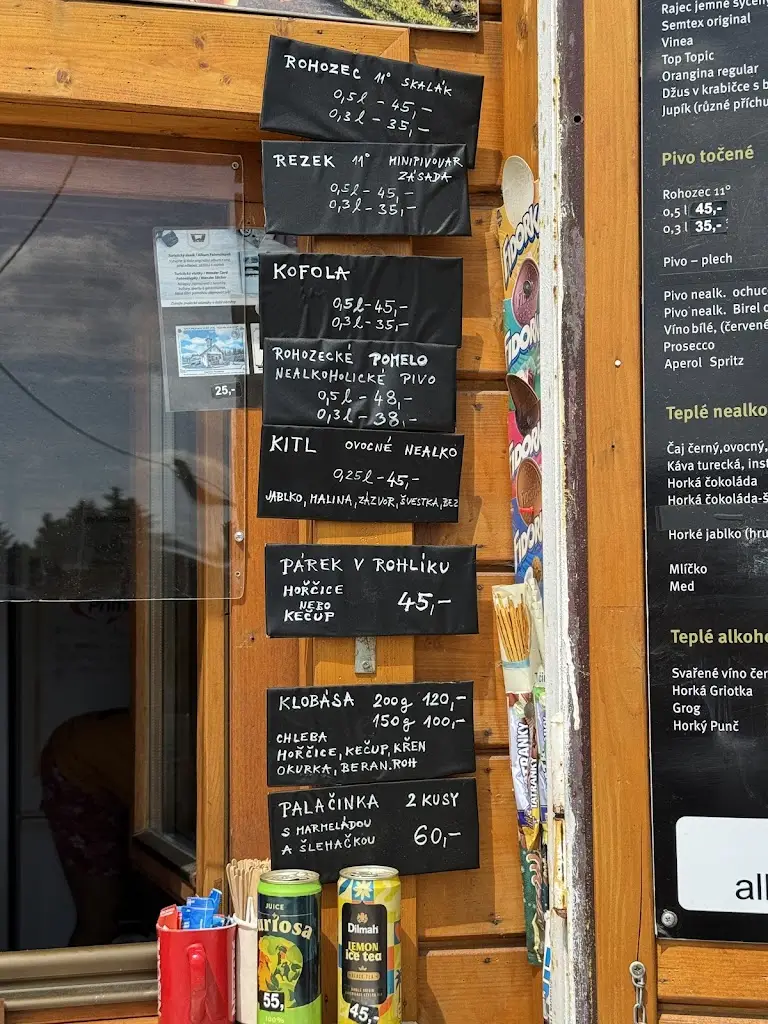 ROHOZEC 11° SKALÁK
0,5l - 45,-
0,3l - 35,-
REZEK 11° MINIPIVOVAR
ZÁSADA
0,5l - 45,-
0,3l - 35,-
KOFOLA
0,5l - 45,-
0,3l - 35,-
ROHOZECKÉ POMELO
NEALKOHOLICKÉ PIVO
0,5l - 48,-
0,3l - 38,-
KITL OVOCNÉ NEALKO
0,25l - 45,-
JABLKO, MALINA, ZÁZVOR, ŠVESTKA, BEZ
PÁREK V ROHLÍKU
HOŘČICE
NEBO
KEČUP
45,-
KLOBÁSA 200g 120,-
150g 100,-
CHLEBA
HOŘČICE, KEČUP, KŘEN
OKURKA, BERAN.ROH
PALAČINKA 2 KUSY
S MARMELÁDOU
A ŠLEHAČKOU
60,-
25,-
FIDORK
JUICE
uriosa
55,
100%
Dilmah
LEMON
ice tea
45,-
TATRANKY
Rajec jemně syčený
Semtex original
Vinea
Top Topic
Orangina regular
Džus v krabičce s b
Jupík (různé přích
Pivo točené
Rohozec 11°
0,5 l 45,-
0,3 l 35,-
Pivo – plech
Pivo nealk. ochuc
Pivo nealk. Birel
Víno bílé, (červené
Prosecco
Aperol Spritz
Teplé nealko
Čaj černý,ovocný,
Káva turecká, inst
Horká čokoláda
Horká čokoláda-š
Horké jablko (hru
Mlíčko
Med
Teplé alkoho
Svařené víno čer
Horká Griotka
Grog
Horký Punč
all